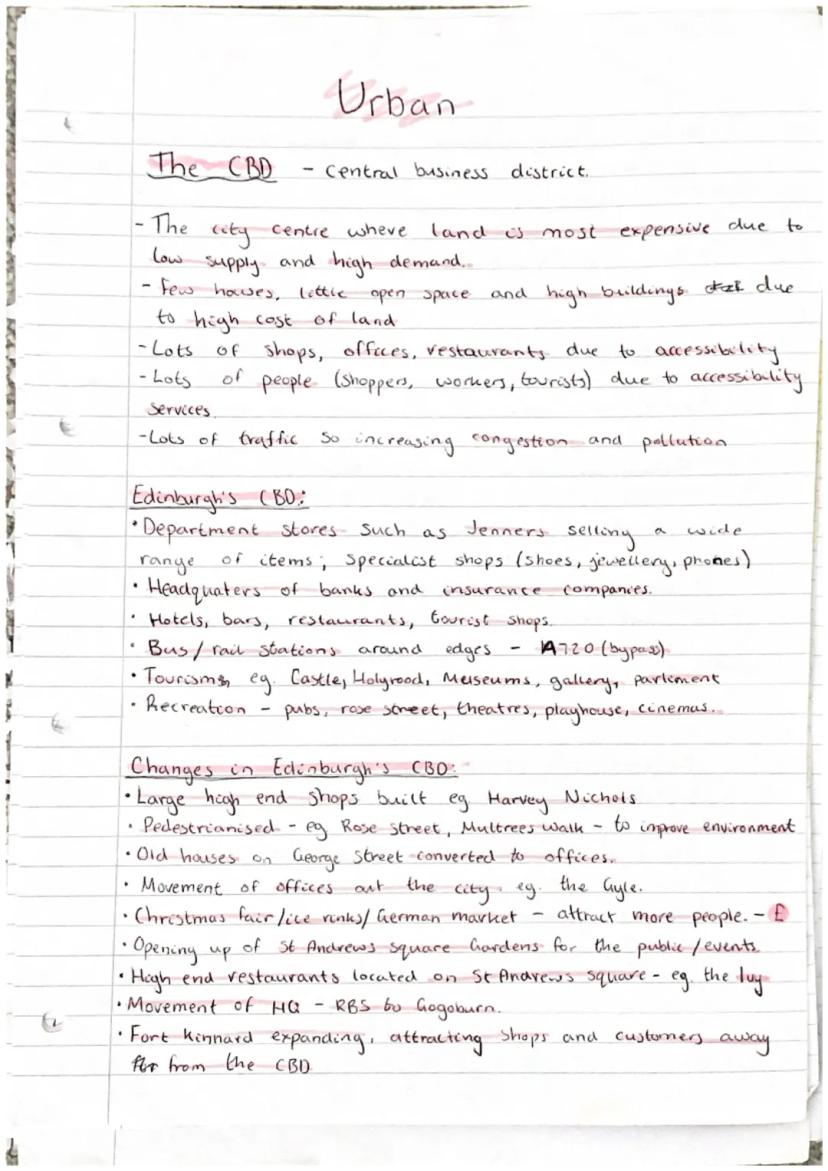 Urban
The CBD - central business district.
- The city centre where land is most expensive due to
low supply and high demand.
- Few houses, little open space and high buildings due
to high cost of land
- Lots of shops, offices, restaurants due to accessibility
- Lots of people (shoppers, workers, tourists) due to accessibility
services.
- Lots of traffic so increasing congestion and pollution
Edinburgh's CBD:
• Department stores such as Jenners selling a wide
range of items; specialist shops (shoes, jewellery, phones)
• Headquaters of banks and insurance companies.
• Hotels, bars, restaurants, tourist shops.
• Bus/rail stations around edges - A720 (bypass)
• Tourism eg. Castle, Holyrood, Meuseums, gallery, parlement
• Recreation - pubs, rose street, theatres, playhouse, cinemas.
Changes in Edinburgh's CBD:
• Large high end shops built eg Harvey Nichols
• Pedestrianised - eg Rose Street, Multrees Walk - to improve environment
• Old houses on George Street converted to offices.
• Movement of offices out the city. eg. the Gyle.
• Christmas fair/ice rinks/German market - attract more people. - £
• Opening up of St Andrews square Gardens for the public/events
• High end restaurants located on St Andrews square - eg. the Ivy
• Movement of HQ - RBS to Gogoburn.
• Fort Kinnard expanding, attracting shops and customers away
from the CBD